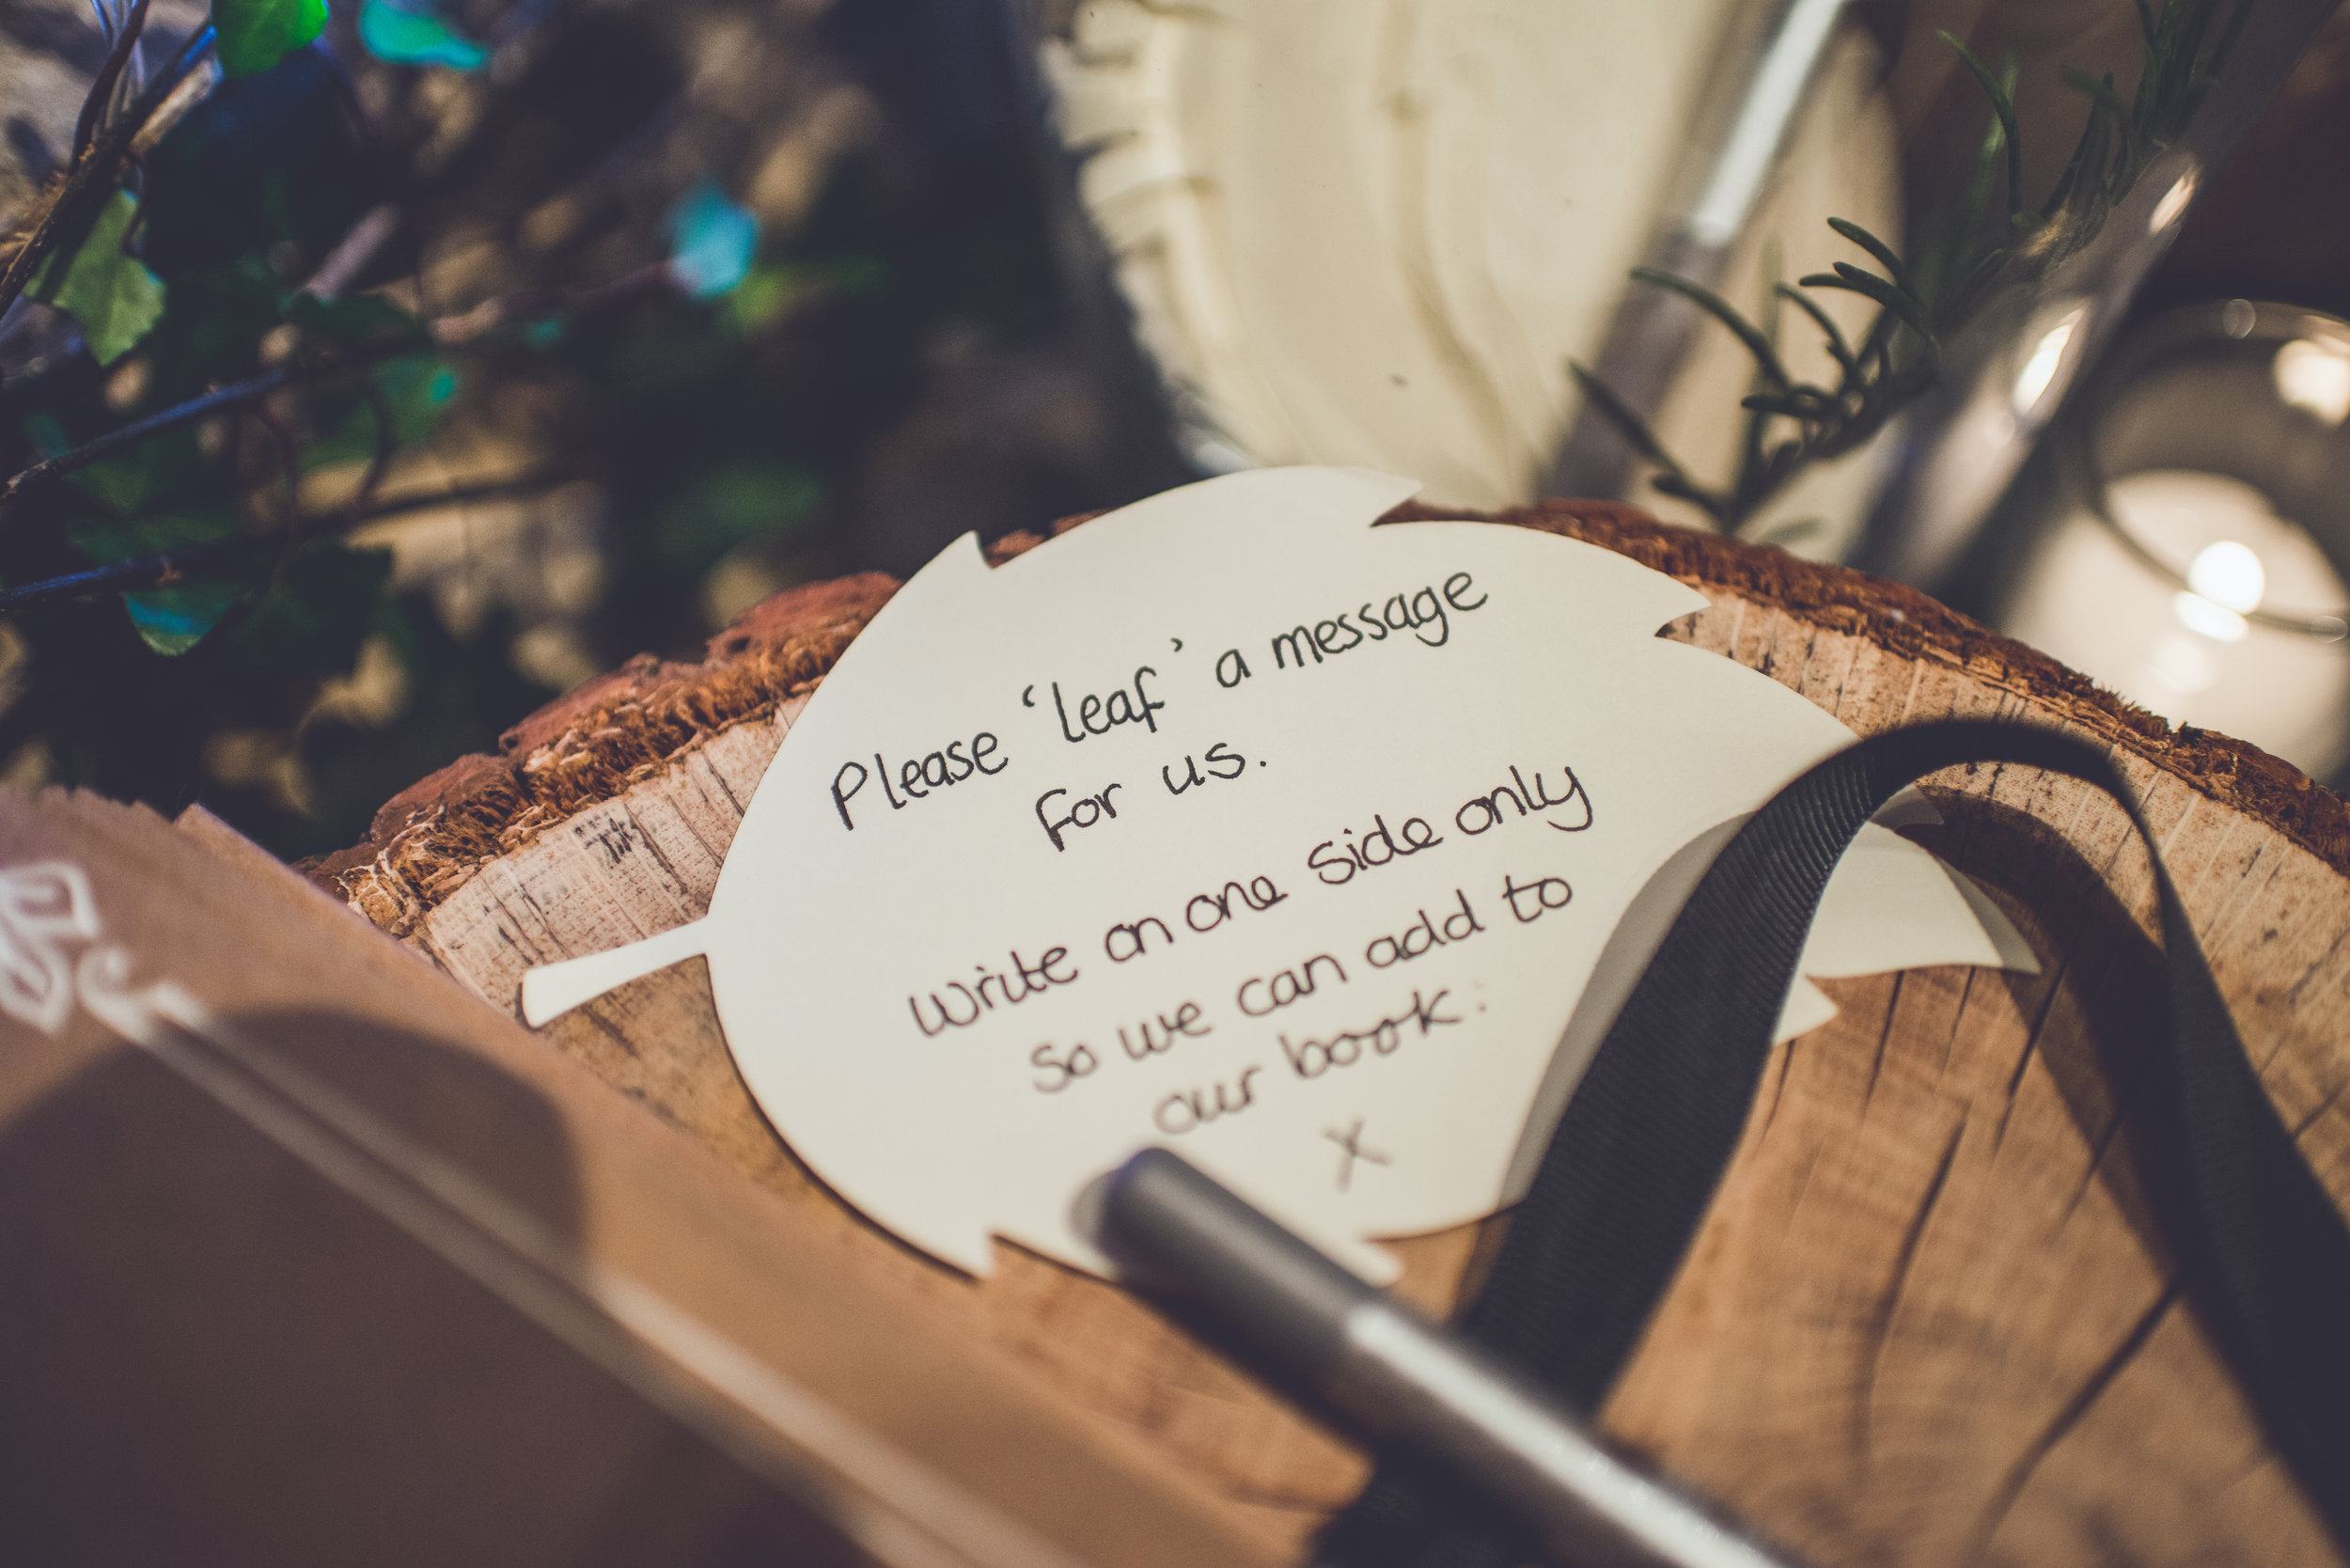 Please 'leaf' a message
for us.
Write on one side only
so we can add to
our book.
X